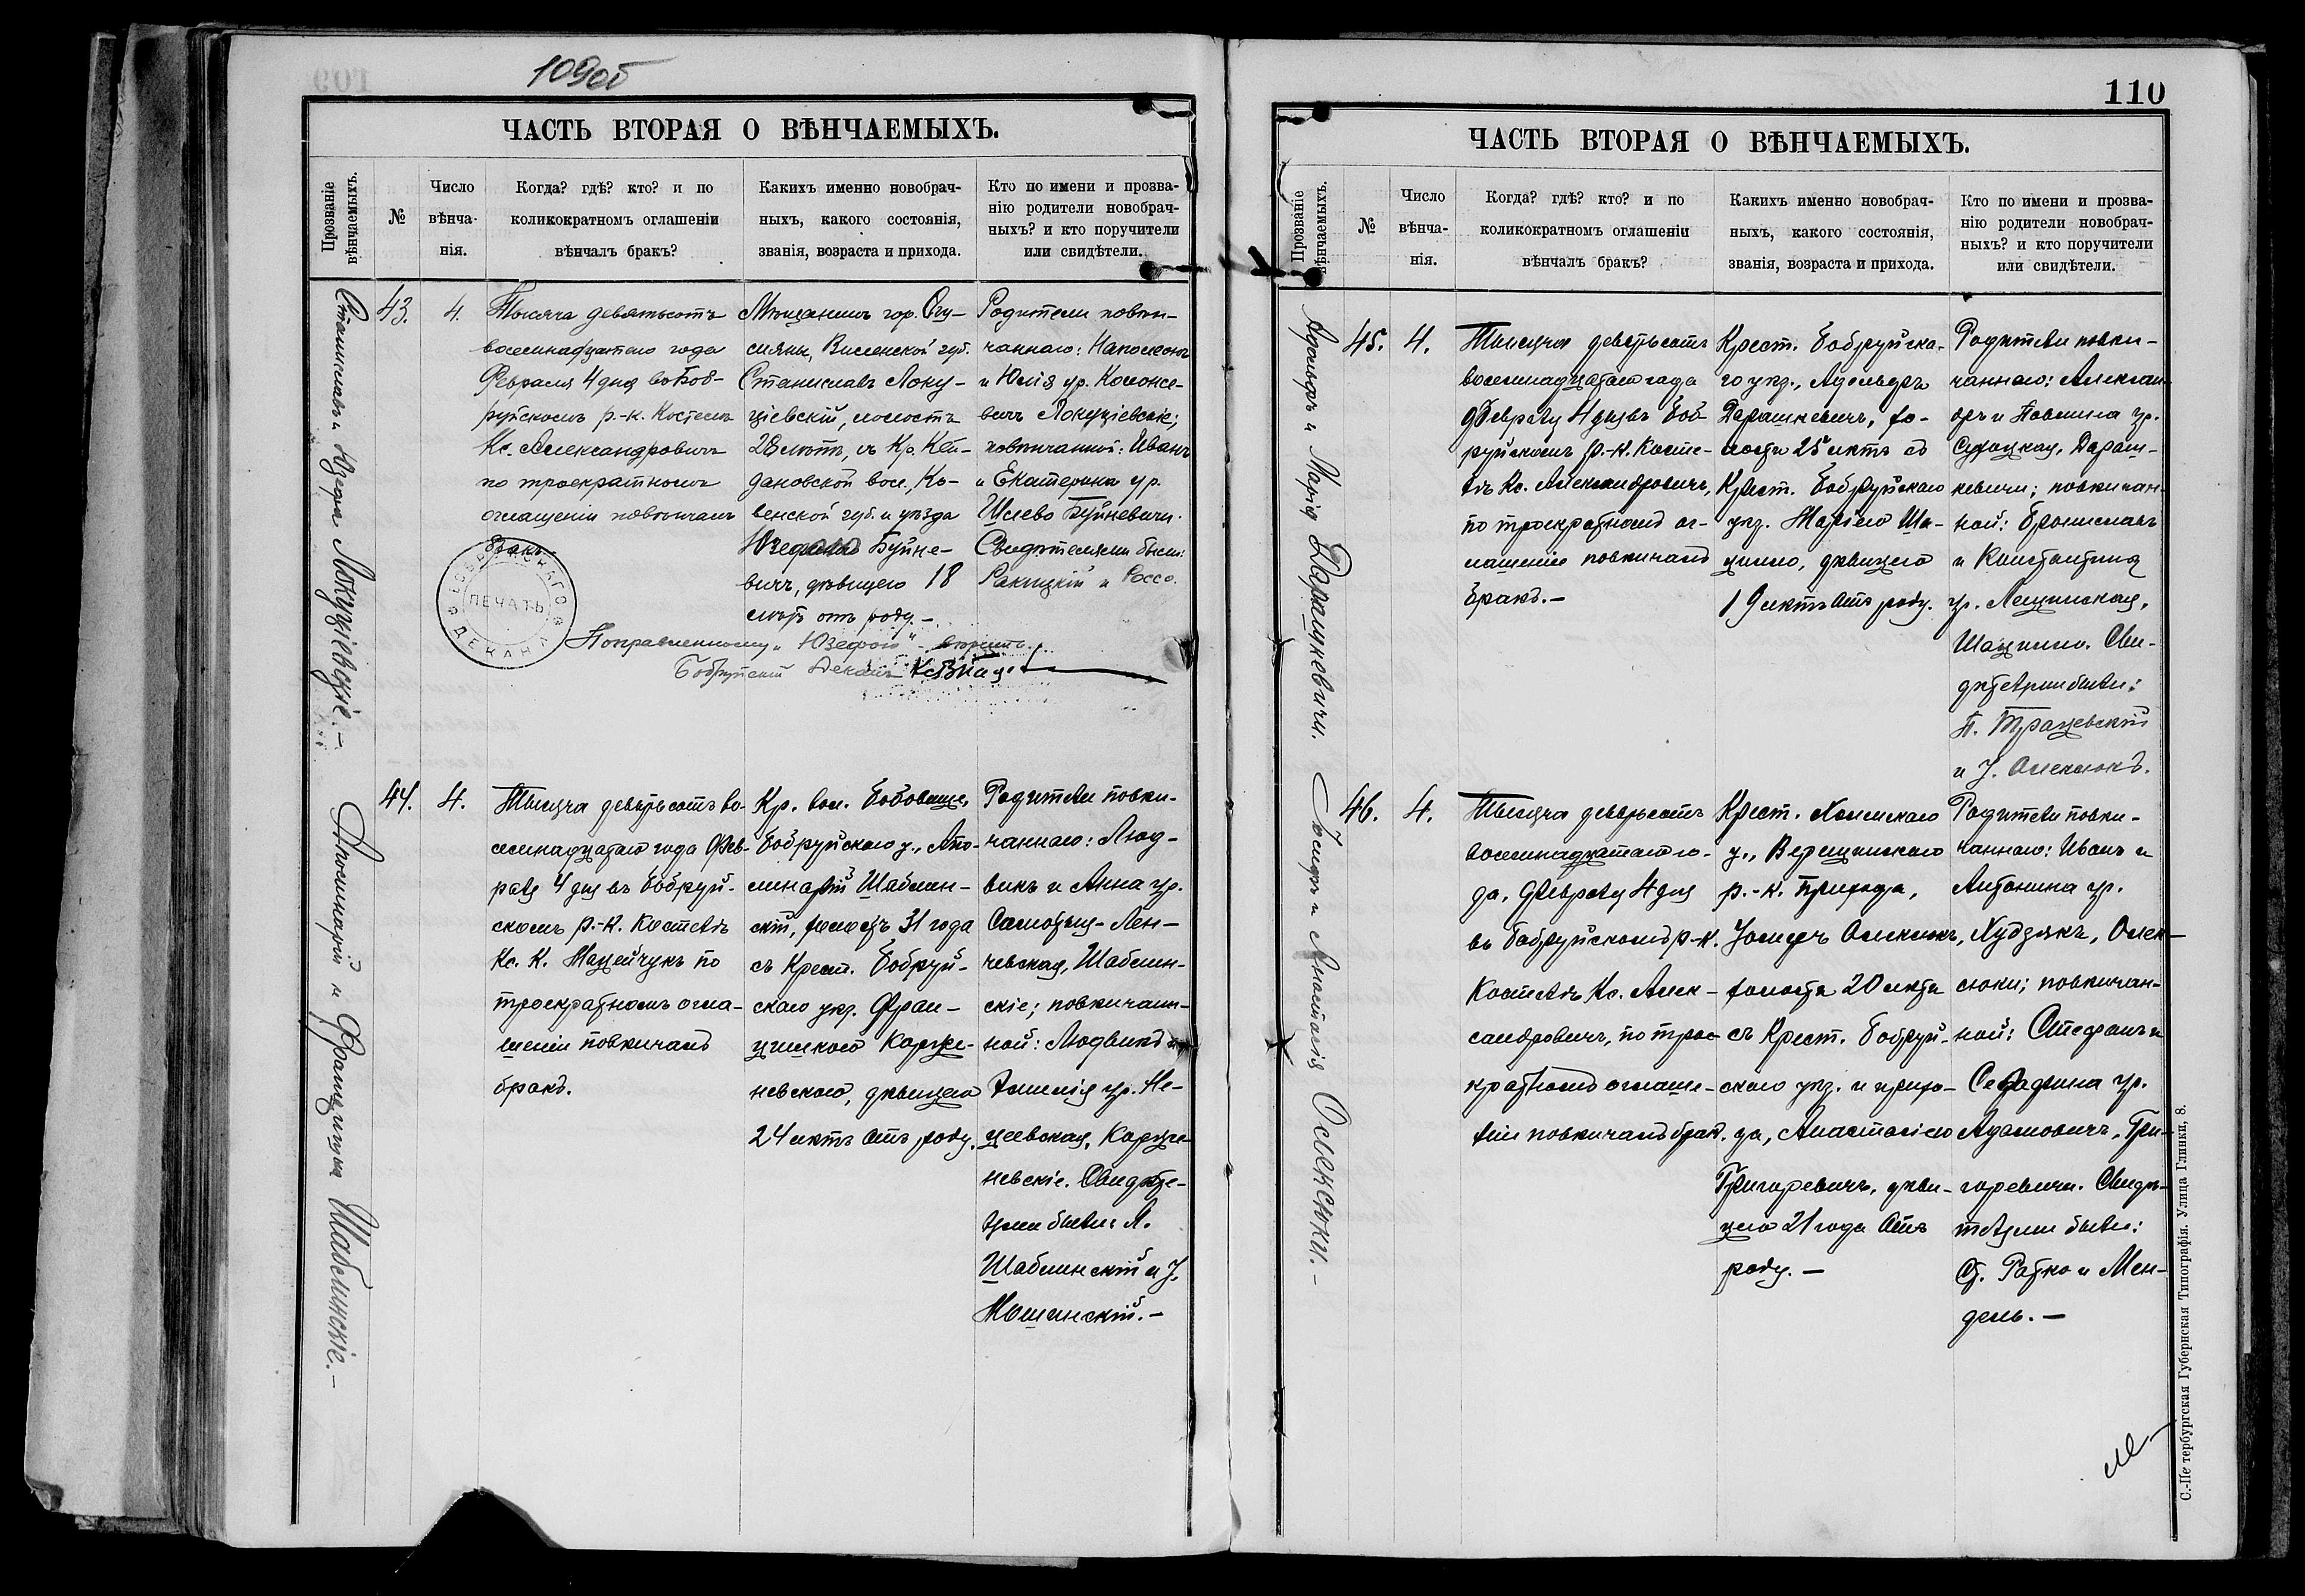 109об
ЧАСТЬ ВТОРАЯ О ВѢНЧАЕМЫХЪ.
Прозваніе вѣнчаемыхъ.
№
Число
вѣнча-
нія.
Когда? гдѣ? кто? и по
коликократномъ оглашеніи
вѣнчалъ бракъ?
Какихъ именно новобрач-
ныхъ, какого состоянія,
званія, возраста и прихода.
Кто по имени и прозва-
нію родители новобрач-
ныхъ? и кто поручители
или свидѣтели.
Станиславъ и Юзефа Локуціевскіе.-
43.
4.
Тысяча девятьсотъ
восемнадцатаго года
Февраля 4 дня въ Боб-
руйскомъ р.-к. Костелѣ
Кс. Александровичъ
по троекратномъ
оглашеніи повѣнчалъ
бракъ.
Мѣщанинъ гор.
сьяны, Виленской губ.
Станиславъ Локу-
ціевскій, холостъ
28 лѣтъ, съ Кр. Кей-
дановской вол., Ко-
венской губ. и уѣзда
Юзефою Буйне-
вичъ, дѣвицею 18
лѣтъ отъ роду.-
Родители повѣн-
чаннаго: Наполеонъ
и Юлія ур.
Локуціевскіе;
повѣнчанной: Иванъ
и Екатерина ур.
Буйневичи.
Свидѣтелями были:
Ракицкій и Россо.
ПЕЧАТЬ
ДЕКАНА
Поправленному „Юзефою" - вѣрить.
Бобруйскій Деканъ
Аполинарій и Францишка Шаблинскіе.-
44.
4.
Тысяча девятьсотъ во-
семнадцатаго года Фев-
раля 4 дня въ Бобруй-
скомъ р.-к. Костелѣ
Кс. К. Мацейчукъ по
троекратномъ огла-
шеніи повѣнчалъ
бракъ.
Кр. вол.
Бобруйскаго у., Апо-
линарій Шаблин-
скій, холостъ 31 года
съ Крест. Бобруй-
скаго уѣз. Фран-
цишкою Карже-
невскою, дѣвицею
24 лѣтъ отъ роду.
Родители повѣн-
чаннаго: Люд-
викъ и Анна ур.
Шаблин-
скіе; повѣнчан-
ной: Людвикъ и
Эмилія ур.
невскіе. Свидѣте-
лями были: А.
Шаблинскій и
110
ЧАСТЬ ВТОРАЯ О ВѢНЧАЕМЫХЪ.
Прозваніе вѣнчаемыхъ.
№
Число
вѣнча-
нія.
Когда? гдѣ? кто? и по
коликократномъ оглашеніи
вѣнчалъ бракъ?
Какихъ именно новобрач-
ныхъ, какого состоянія,
званія, возраста и прихода.
Кто по имени и прозва-
нію родители новобрач-
ныхъ? и кто поручители
или свидѣтели.
Адольфъ и Марія Дарашкевичи.
45.
4.
Тысяча девятьсотъ
восемнадцатаго года
Февраля 4 дня въ Боб-
руйскомъ р.-к. Косте-
лѣ Кс. Александровичъ,
по троекратномъ ог-
лашеніи повѣнчалъ
бракъ.-
Крест. Бобруйска-
го уѣз., Адольфъ
Дарашкевичъ, хо-
лостъ 25 лѣтъ съ
Крест. Бобруйскаго
уѣз. Маріею Ша-
цилло, дѣвицею
19 лѣтъ отъ роду.
Родители повѣн-
чаннаго: Алексан-
дръ и Павлина ур.
Дараш-
кевичи; повѣнчан-
ной: Брониславъ
и Константина
ур. Лещинская,
Шацилло. Сви-
дѣтелями были:
П. Трацевскій
и І. Олексюкъ.
Іосифъ и Анастасія Олексюки.-
46.
4.
Тысяча девятьсотъ
восемнадцатаго го-
да, Февраля 4 дня
въ Бобруйскомъ р.-к.
Костелѣ Кс. Алек-
сандровичъ, по трое-
кратномъ оглаше-
ніи повѣнчалъ брак.
Крест. Холмскаго
у., Верещинскаго
р.-к. прихода,
Іосифъ Олексюкъ,
холостъ 20 лѣтъ
съ Крест. Бобруй-
скаго уѣз. и прихо-
да, Анастасіею
Григоревичъ, дѣви-
цею 21 года отъ
роду.-
Родители повѣн-
чаннаго: Иванъ и
Антонина ур.
Худзякъ, Олек-
сюки; повѣнчан-
ной: Стефанъ и
Серафина ур.
Адамовичъ, Гри-
горевичи. Свидѣ-
телями были:
Ратко и Мен-
дель.-
С.-Петербургская Губернская Типографія. Улица Глинки, 8.